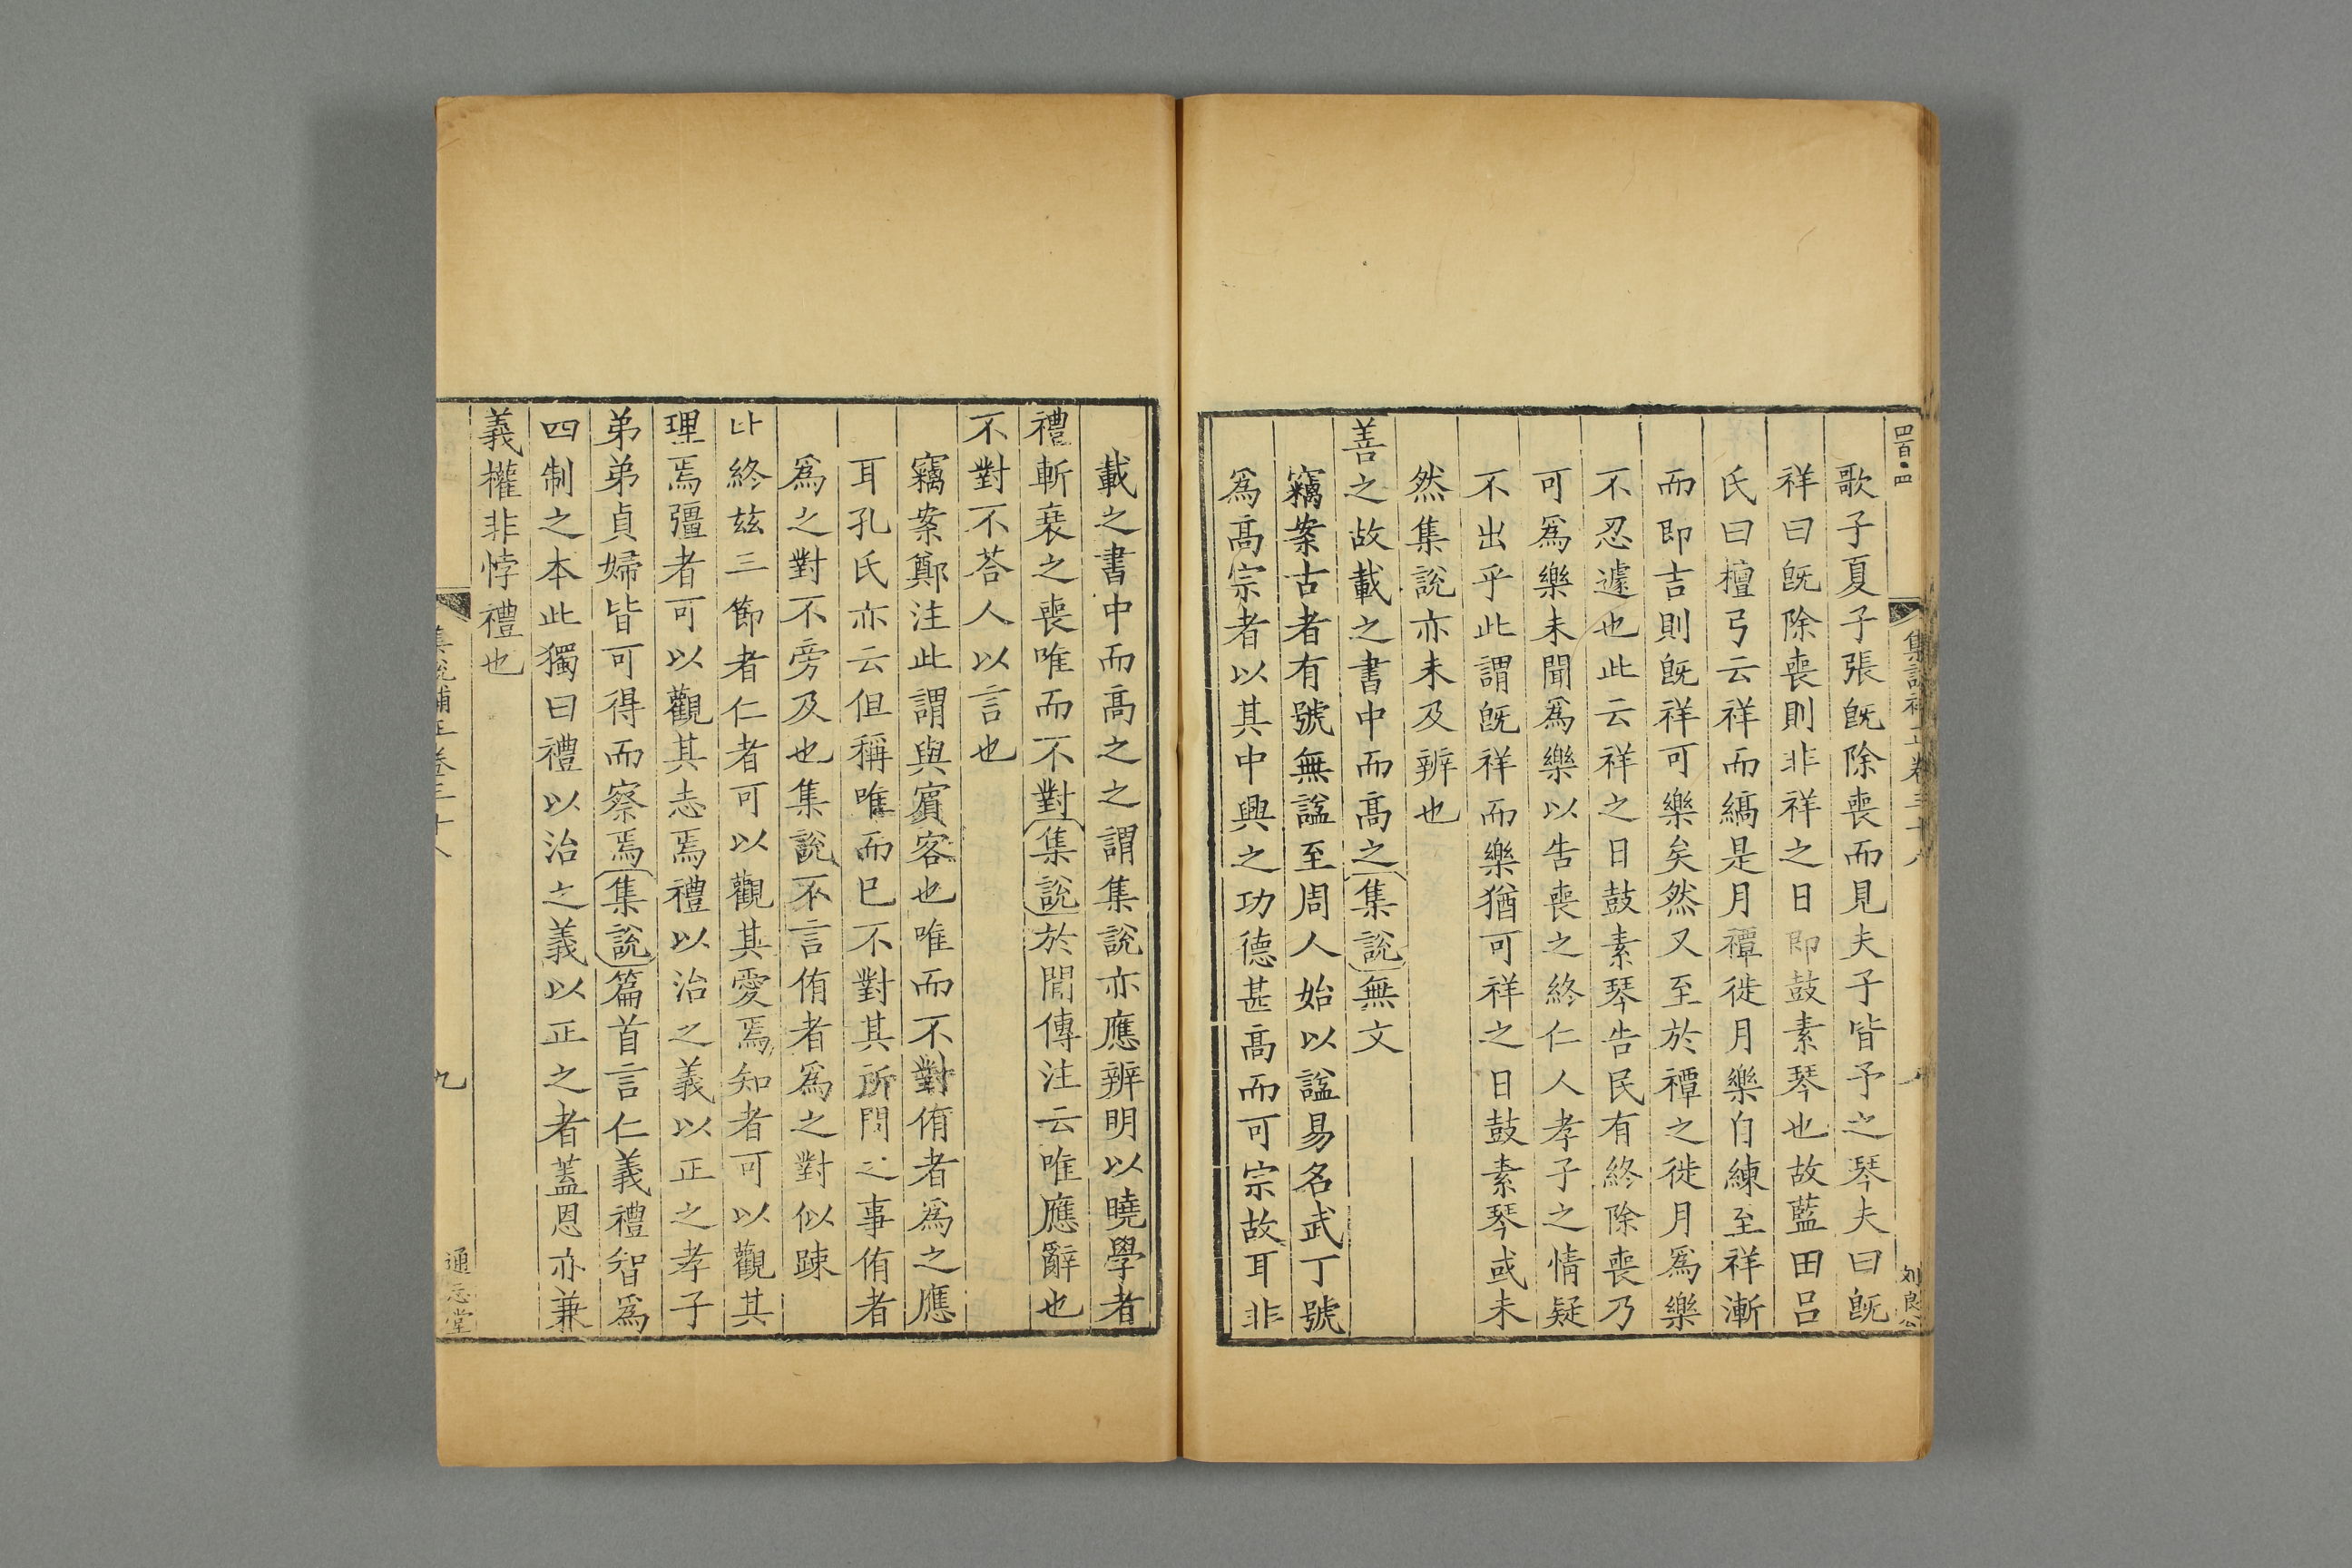 四百四
集說補正卷三十八
刘良公
歌子夏子張旣除喪而見夫子皆予之琴夫曰旣
祥曰旣除喪則非祥之日即鼓素琴也故藍田吕
氏曰檀弓云祥而縞是月禫徙月樂自練至祥漸
而即吉則旣祥可樂矣然又至於禫之徙月爲樂
不忍遽也此云祥之日鼓素琴告民有終除喪乃
可爲樂未聞爲樂以告喪之終仁人孝子之情疑
不出乎此謂旣祥而樂猶可祥之日鼓素琴或未
然集說亦未及辨也
善之故載之書中而高之集說無文
竊案古者有號無諡至周人始以諡易名武丁號
爲高宗者以其中興之功德甚高而可宗故耳非
載之書中而高之之謂集說亦應辨明以曉學者
禮斬衰之喪唯而不對集說於閒傳注云唯應辭也
不對不荅人以言也
竊案鄭注此謂與賓客也唯而不對侑者爲之應
耳孔氏亦云但稱唯而已不對其所問之事侑者
爲之對不旁及也集說不言侑者爲之對似踈
比終茲三節者仁者可以觀其愛焉知者可以觀其
理焉彊者可以觀其志焉禮以治之義以正之孝子
弟弟貞婦皆可得而察焉集說篇首言仁義禮智爲
四制之本此獨曰禮以治之義以正之者蓋恩亦兼
義權非悖禮也
集說補正卷三十八
九
通志堂